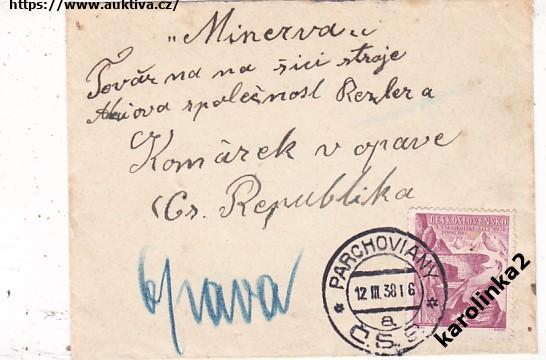 https://www.auktiva.cz/
„Minerva"
Továrna na šici stroje
Akiova společnost Rezler a
Komárek v opavě
Čs. Republika
Opava
PARCHOVIANY
12 III 38 16
a
Č.S.
ČESKOSLOVENSKO
1 Kč
karolinka2